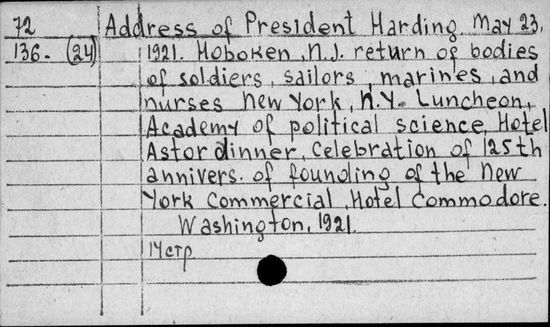 72 Address of President Harding. May 23,
136-(24) 1921. Hoboken, N.J. return of bodies
of soldiers, sailors, marines, and
nurses New York, N.Y. Luncheon,
Academy of political science, Hotel
Astor dinner, Celebration of 125th
annivers. of founding of the New
York Commercial, Hotel Commodore.
Washington, 1921.
14 стр.